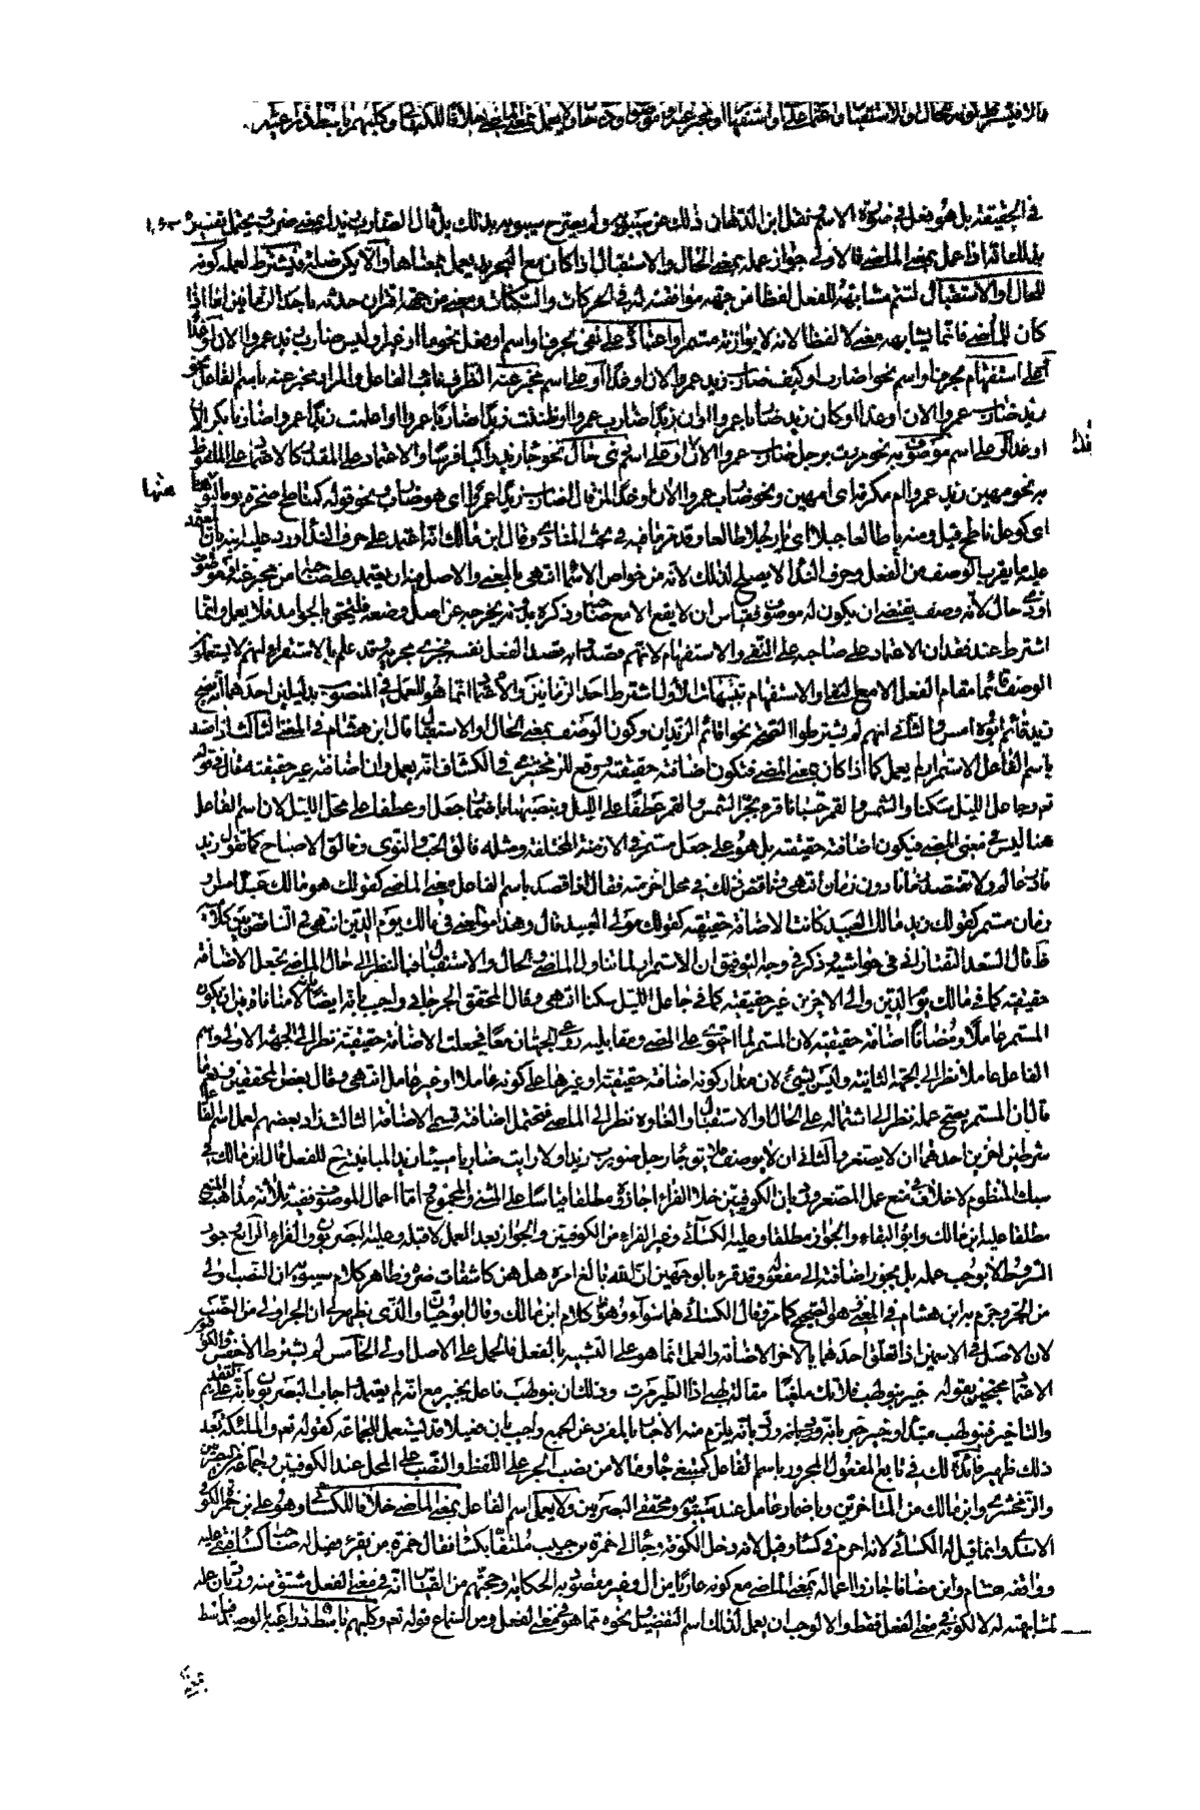 في الحقيقة بل هو فعل في صورة الاسم نقل ابن الدهان ذلك عن سيبويه ولم يصرح سيبويه بذلك بل قال الضارب زيدا بمعنى ضرب يحتمل تفسيره
بذلك انه اذا عمل بمعنى الماضي فالاولى جواز عمله بمعنى الحال والاستقبال اذا كان مع التجريد يعمل بمعناها والا يكن صلة فيشترط لعمله كونه
للحال او الاستقبال لتتم مشابهته للفعل لفظا من جهة موافقته له في الحركات والسكنات ومعنى من جهة اقتران حدثه باحد الزمانين اما اذا
كان للماضي فانما يشابهه معنى لا لفظا لانه لا يوازنه مستمرا واعتماده على نفي بحرف او اسم او فعل نحو ما ولیس ضارب زيد عمرا الان او غدا
او على استفهام بحرف او اسم نحو اضارب او كيف ضارب زيد عمرا الان او غدا او على اسم مخبر عنه الظرف نائب الفاعل والمراد مخبر عنه باسم الفاعل نحو
زيد ضارب عمرا الان او غدا او كان زيد ضاربا عمرا او ان زيدا ضارب عمرا او ظننت زيدا ضاربا عمرا او اعلمت زيدا عمرا ضاربا بكرا الان
او غدا او على اسم موصوف به نحو مررت برجل ضارب عمرا الان او على اسم ذي حال نحو جاء زيد راكبا فرسا والاعتماد على المقدر كالاعتماد على الملفوظ
به نحو مهين زيد عمرا ام مكرمه اى امهين ونحو ضارب عمرا الان او غدا لمن قال اضارب زيد اعمرا اى هو ضارب نحو قوله كناطح صخرة يوما ليوهنها
اى كوعل ناطح قيل ومنه يا طالعا جبلا اى يا رجلا طالعا وقد قرما فيه في مبحث المنادى وقال ابن مالك انه اعتمد على حرف النداء ورد عليه ابنه بان المعتمد
عليه ما يقرب الوصف من الفعل وحرف النداء لا يصلح لذلك لانه من خواص الاسماء انتهى بالمعنى والاصل فيه ان يعتمد على صاحبها من مخبر عنه او موصوف
او ذي حال لانه وصف يقتضى ان يكون له موصوف فقياس ان لا يقع الا مع صاحبه وذكره بدونه يخرجه عن اصل وضعه فيلتحق بالجوامد فلا يعمل وانما
اشترط عند فقدان الاعتماد على صاحبه على النفي والاستفهام لانهم قصدوا به قصد الفعل نفسه مجرى مجرده وقد علم بالاستقراء انهم لا يستعملون
الوصف قائما مقام الفعل الا مع النفي او الاستفهام تنبيهات الاول اشتراط احد الزمانين والاعتماد انما هو للعمل في المنصوب بدليلين احدهما انه يصح
زيد قائم ابوه امس والثاني انهم لم يشترطوا لصحة نحو اقائم الزيدان وكون الوصف بمعنى الحال والاستقبال قال ابن هشام في المغنى الثانى اذا قصد
باسم الفاعل الاستمرار لم يعمل كما اذا كان بمعنى المضي فتكون اضافته حقيقية ووقع للزمخشري في الكشاف انه يعمل وان اضافته غير حقيقية فقال في قوله
تعم وجاعل الليل سكنا والشمس والقمر حسبانا قرء بجر الشمس والقمر عطفا على الليل وبنصبهما باضمار جعل او عطفا على محل الليل لان اسم الفاعل
هنا ليس في معنى المضي فيكون اضافته حقيقية بل هو على جعل مستمر في الازمنة المختلفة ومثله فالق الحب والنوى وفالق الاصباح كما تقول زيد
قادر عالم ولا تقصد زمانا دون زمان انتهى وناقض ذلك في محل اخر منه فقال اذا قصد باسم الفاعل معنى الماضي كقولك هو مالك عبده امس او
زمان مستمر كقولك زيد مالك العبيد كانت الاضافة حقيقية كقولك مولى العبيد قال وهذا هو المعنى في مالك يوم الدين انتهى والتناقض بين كلاميه
ظ قال السعد التفتازانى في حواشيه وذكر في وجه التوفيق ان الاستمرار لما تناول الماضى والحال والاستقبال فبالنظر الى حال الماضى تجعل الاضافة
حقيقية كما في مالك يوم الدين والى الاخرين غير حقيقية كما في جاعل الليل سكنا انتهى وقال المحقق الجرجانى واجيب بانه ايضا لا منافاة بين ان يكون
المستمر عاملا ومضافا اضافة حقيقية لان المستمر لما احتوى على المضى ومقابليه روعى الجهتان معا فجعلت الاضافة حقيقية نظرا الى الجهة الاولى واسم
الفاعل عاملا نظرا الى الجهة الثانية وليس بشيء لان مدار كونه اضافة حقيقية او غيرها على كونه عاملا او غير عامل انتهى وقال بعض المحققين
قالبان المستمر يصح عمله نظرا الى اشتماله على الحال والاستقبال والغاؤه نظرا الى الماضى فتحتمل اضافته قسمى الاضافة الثالث زاد بعضهم لعمل اسم الفاعل
شرطين اخرين احدهما ان لا يصغر والثانى ان لا يوصف فلا يجوز جاء رجل ضويرب زيدا ولا رايت ضاربا مسيئا زيدا لمباينته ح للفعل قال ابن مالك في
سبك المنظوم لا خلاف في منع عمل المصغر ورد بان الكوفيين خلا الفراء اجازوه مطلقا قياسا على المثنى والمجموع اما اعمال الموصوف ففيه ثلاثة مذاهب المنع
مطلقا عليه ابن مالك وابو البقاء والجواز مطلقا وعليه الكسائى وغير الفراء من الكوفيين والجواز بعد العمل لا قبله وعليه البصريون والفراء الرابع وجود
الشروط لا يوجب عمله بل يجوز اضافته الى مفعوله وقد قرء بالوجهين ان الله بالغ امره هل هن كاشفات ضره وظاهر كلام سيبويه ان النصب اولى
من الجر وجزم به ابن هشام في المغنى هو الصحيح كما مر وقال الكسائى هما سواء وهو ظ كلام ابن مالك وقال ابو حيان والذى يظهر لى ان الجر اولى من النصب
لان الاصل في الاسمين اذا تعلق احدهما بالاخر الاضافة والعمل انما هو على التشبيه بالفعل فالحمل على الاصل اولى الخامس لم يشترط الاخفش والكوفيون
الاعتماد محتجين بقوله خبير بنو لهب فلا تك ملغيا مقالة لهبى اذا الطير مرت وذلك ان بنو لهب فاعل بخبير مع انه لم يعتمد اجاب البصريون بانه على التقديم
والتاخير فبنو لهب مبتدا وخبير خبر بانه ورد بانه يلزم منه الاخبار بالمفرد عن الجمع واجيب بان فعيلا قد يستعمل للجماعة كقوله تعم والملئكة بعد
ذلك ظهير فائدة لك في تابع المفعول المجرور باسم الفاعل كمبتغى جاه ومالا من نصب الجر على اللفظ والنصب على المحل عند الكوفيين وجماعة من البصريين
والزمخشرى وابن مالك من المتاخرين وباضمار عامل عند سيبويه ومحققى البصريين ولا يعمل اسم الفاعل بمعنى الماضى خلافا للكسائى وهو على بن حمزة الكوفى
الاسدى وانما قيل له الكسائى لانه احرم في كساء وقيل لانه دخل الكوفة وجاء الى حمزة بن حبيب ملتفا بكساء فقال حمزة من يقرء فقيل له صاحب الكساء فبقى عليه
ووافقه هشام وابن مضاء فاجازوا اعماله بمعنى الماضى مع كونه عاريا من ال وغير مقصود به الحكاية وحجتهم من القياس انه في معنى الفعل مشتق منه ورد بان عمله
لمشابهته له لا لكونه في معنى الفعل فقط والا لوجب ان يعمل لذلك اسم التفضيل نحوه مما هو في معنى الفعل ومن السماع قوله تعم وكلبهم باسط ذراعيه بالوصيد فباسط